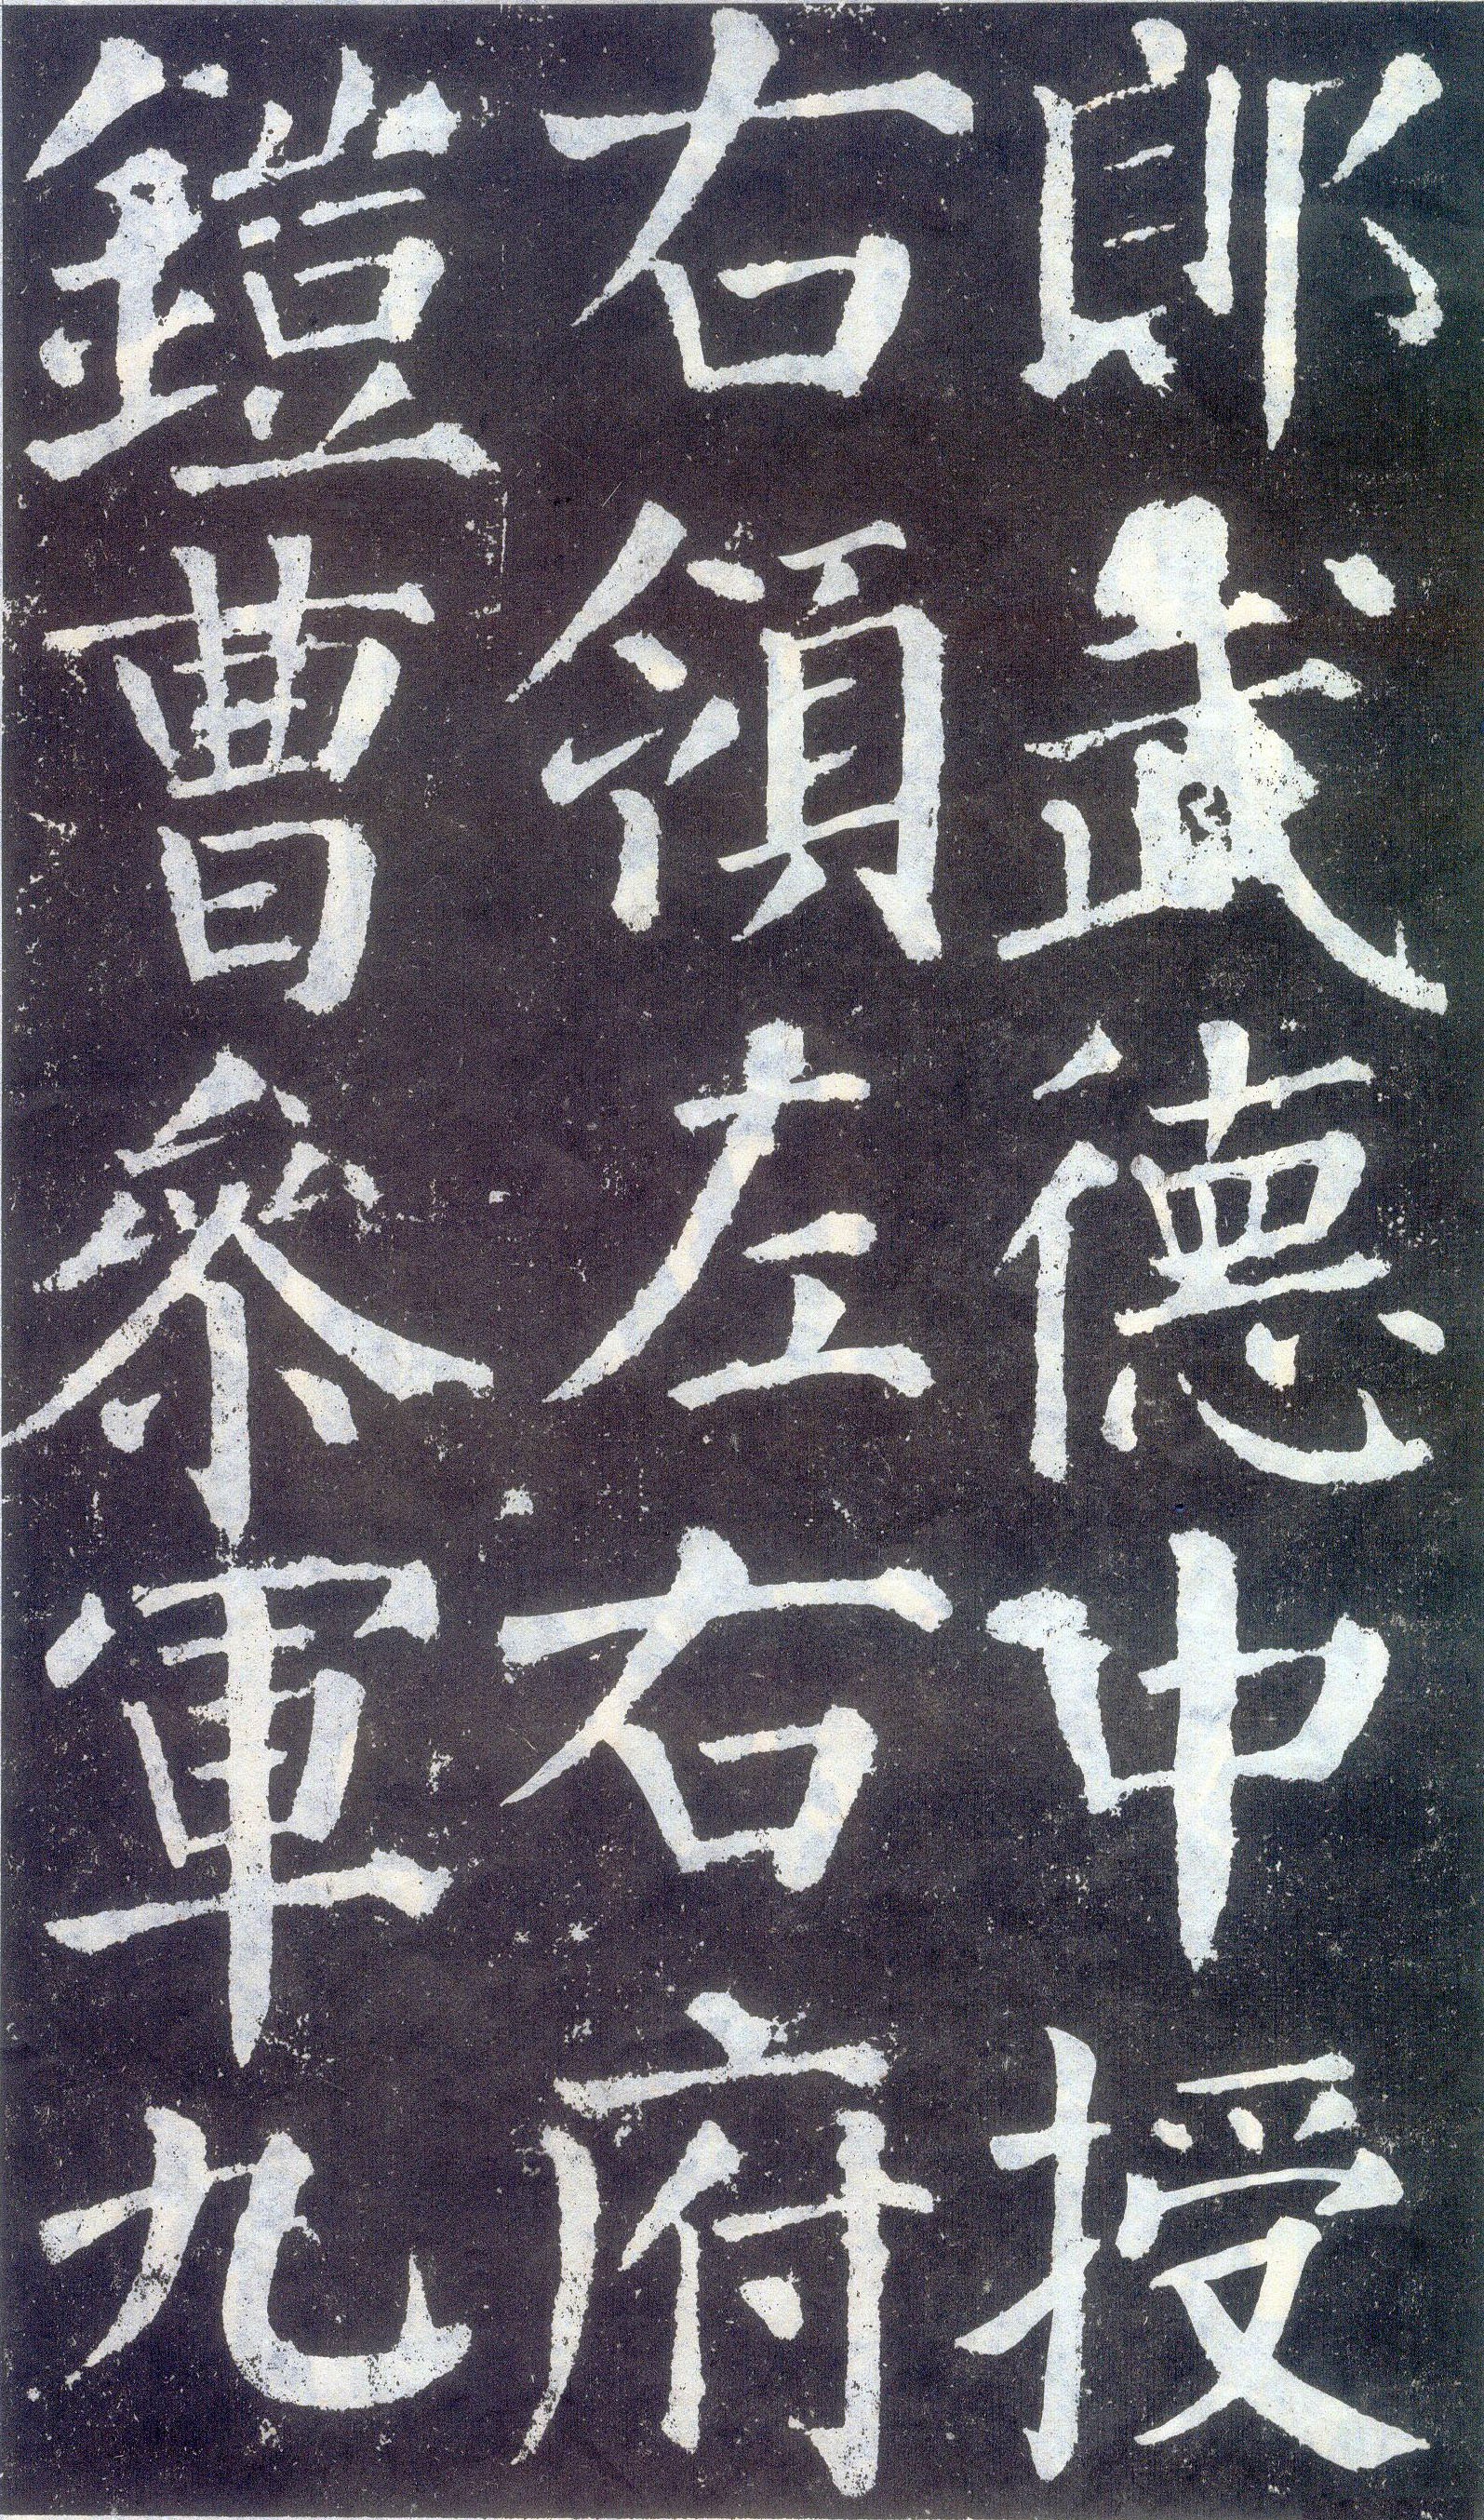 郎武德中授
右領左右府
鎧曹參軍九